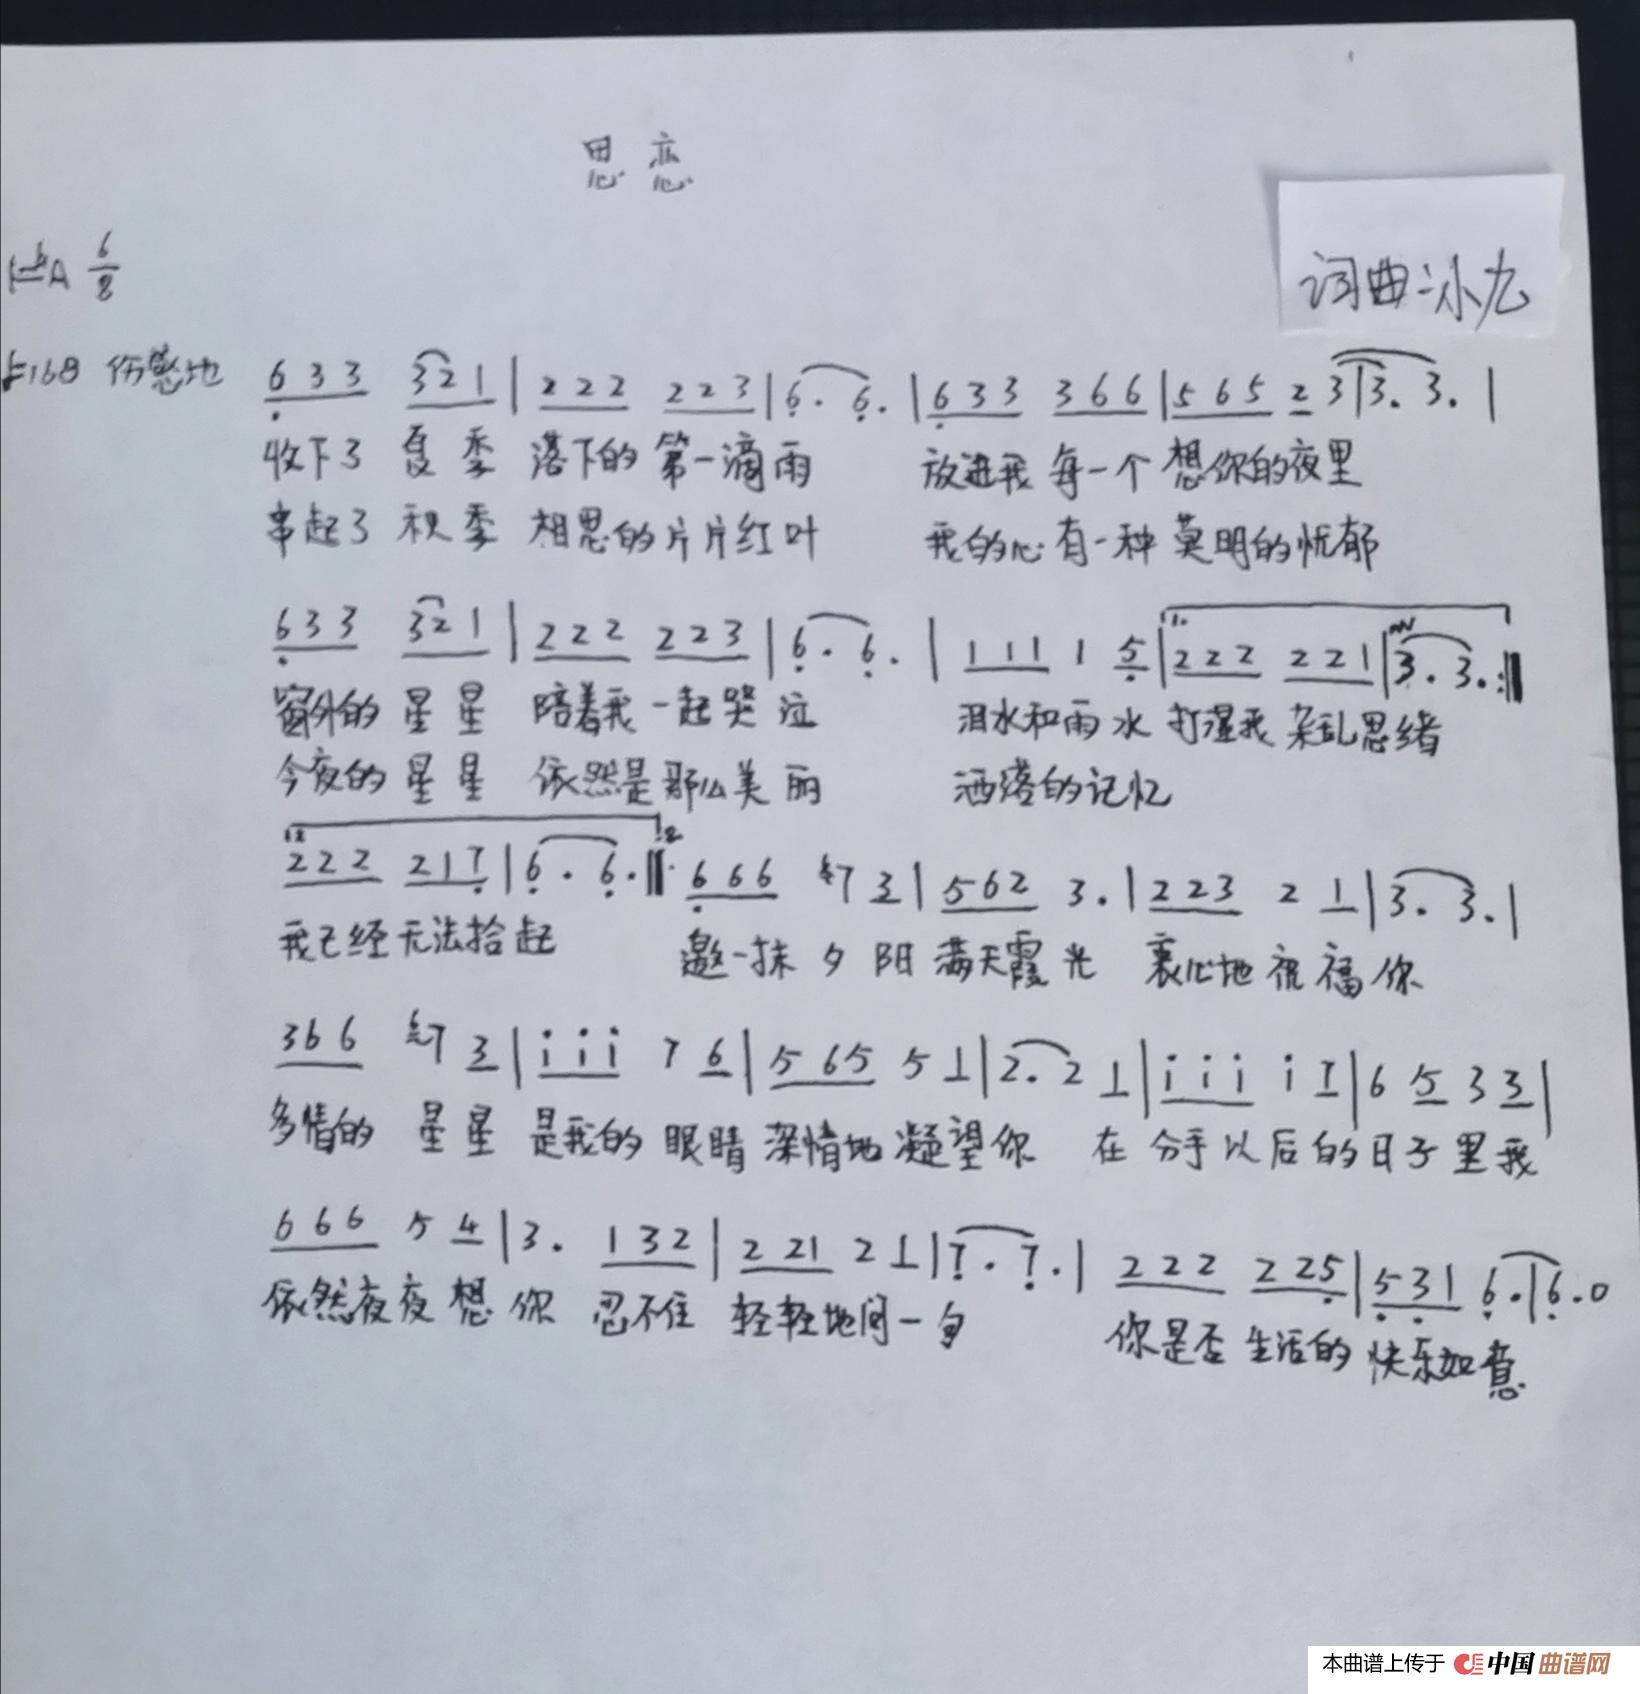 思恋
1=♭A 6/8
词曲:冰九
♩=168 伤感地 6 3 3 3 2 1 | 2 2 2 2 2 3 | 6. 6. | 6 3 3 3 6 6 | 5 6 5 2 3 | 3. 3. |
收下了 夏季 落下的 第一滴雨 放进我 每一个 想你的夜里
串起了 秋季 相思的片片红叶 我的心有一种 莫明的忧郁
6 3 3 3 2 1 | 2 2 2 2 2 3 | 6. 6. | 1 1 1 1 5 | 1. 2 2 2 2 2 1 | 3. 3. :‖
窗外的 星星 陪着我 一起哭泣 泪水和雨水 打湿我 杂乱思绪
今夜的 星星 依然是那么美丽 洒落的记忆
2 2 2 2 1 7 | 6. 6. ‖ 6 6 6 7 3 | 5 6 2 3. | 2 2 3 2 1 | 3. 3. |
我已经无法拾起 邀一抹 夕阳 满天霞光 衷心地 祝福你
3 6 6 7 3 | i i i 7 6 | 5 6 5 5 1 | 2. 2 1 | i i i i 7 | 6 5 3 3 |
多情的 星星 是我的 眼睛 深情地 凝望你 在 分手以后的日子里我
6 6 6 5 4 | 3. 1 3 2 | 2 2 1 2 1 | 7. 7. | 2 2 2 2 2 5 | 5 3 1 6. | 6. 0
依然夜夜想你 忍不住 轻轻地问一句 你是否 生活的 快乐如意
本曲谱上传于 中国曲谱网